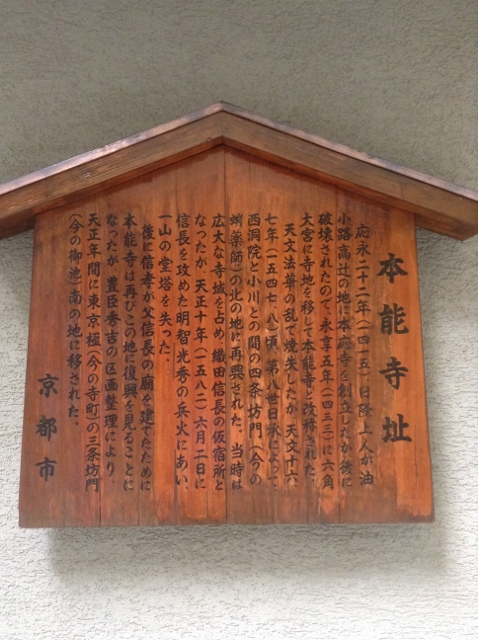 本能寺址
応永二十二年(一四一五)日隆上人が油
小路高辻の地に本応寺を創立したが後に
破壊されたので、永享五年(一四三三)に六角
大宮に寺地を移して本能寺と改称された。
天文法華の乱で焼失したが、天文十六、
七年(一五四七、八)頃、第八世日承によって、
西洞院と小川との間の四条坊門(今の
蛸薬師)の北の地に再興された。当時は
広大な寺域を占め、織田信長の仮宿所と
なったが、天正十年(一五八二)六月二日に
信長を攻めた明智光秀の兵火にあい、
一山の堂塔を失った。
後に信孝が父信長の廟を建てたために
本能寺は再びこの地に復興を見ることに
なったが、豊臣秀吉の区画整理により、
天正年間に東京極(今の寺町)の三条坊門
(今の御池)南の地に移された。
京都市